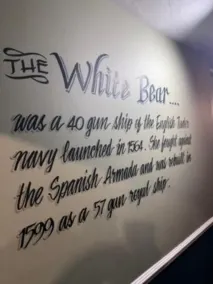 THE White Bear....
was a 40 gun ship of the English Tudor
navy launched in 1564. She fought against
the Spanish Armada and was rebuilt in
1599 as a 57 gun royal ship.